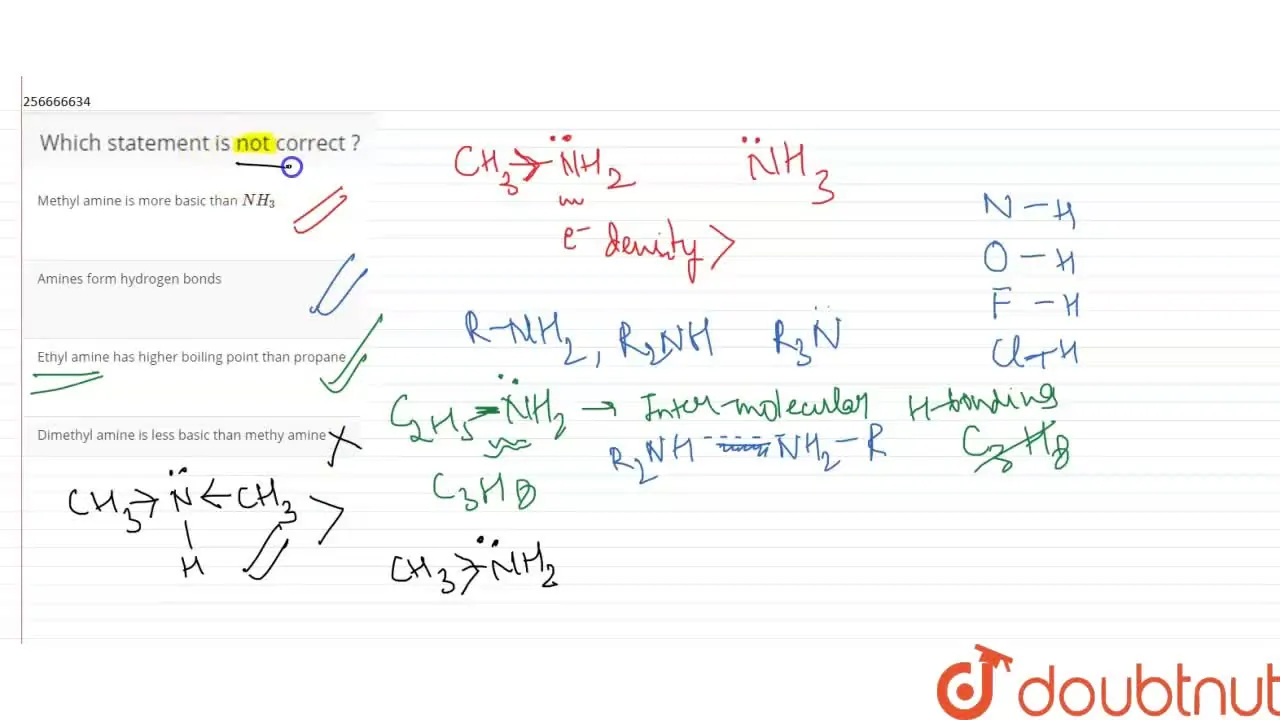 256666634
Which statement is not correct ?
Methyl amine is more basic than NH₃
Amines form hydrogen bonds
Ethyl amine has higher boiling point than propane
Dimethyl amine is less basic than methy amine
CH₃ > N̈H₂
N̈H₃
e⁻ density >
N-H
O-H
F-H
Cl-H
R-NH₂, R₂NH R₃N̈
C₂H₅-N̈H₂ → Inter-molecular H-bonding
R₂NH ---- NH₂-R
C₃H₈
C₃H₈
CH₃ → N̈ ← CH₃ >
H
CH₃ > N̈H₂
doubtnut